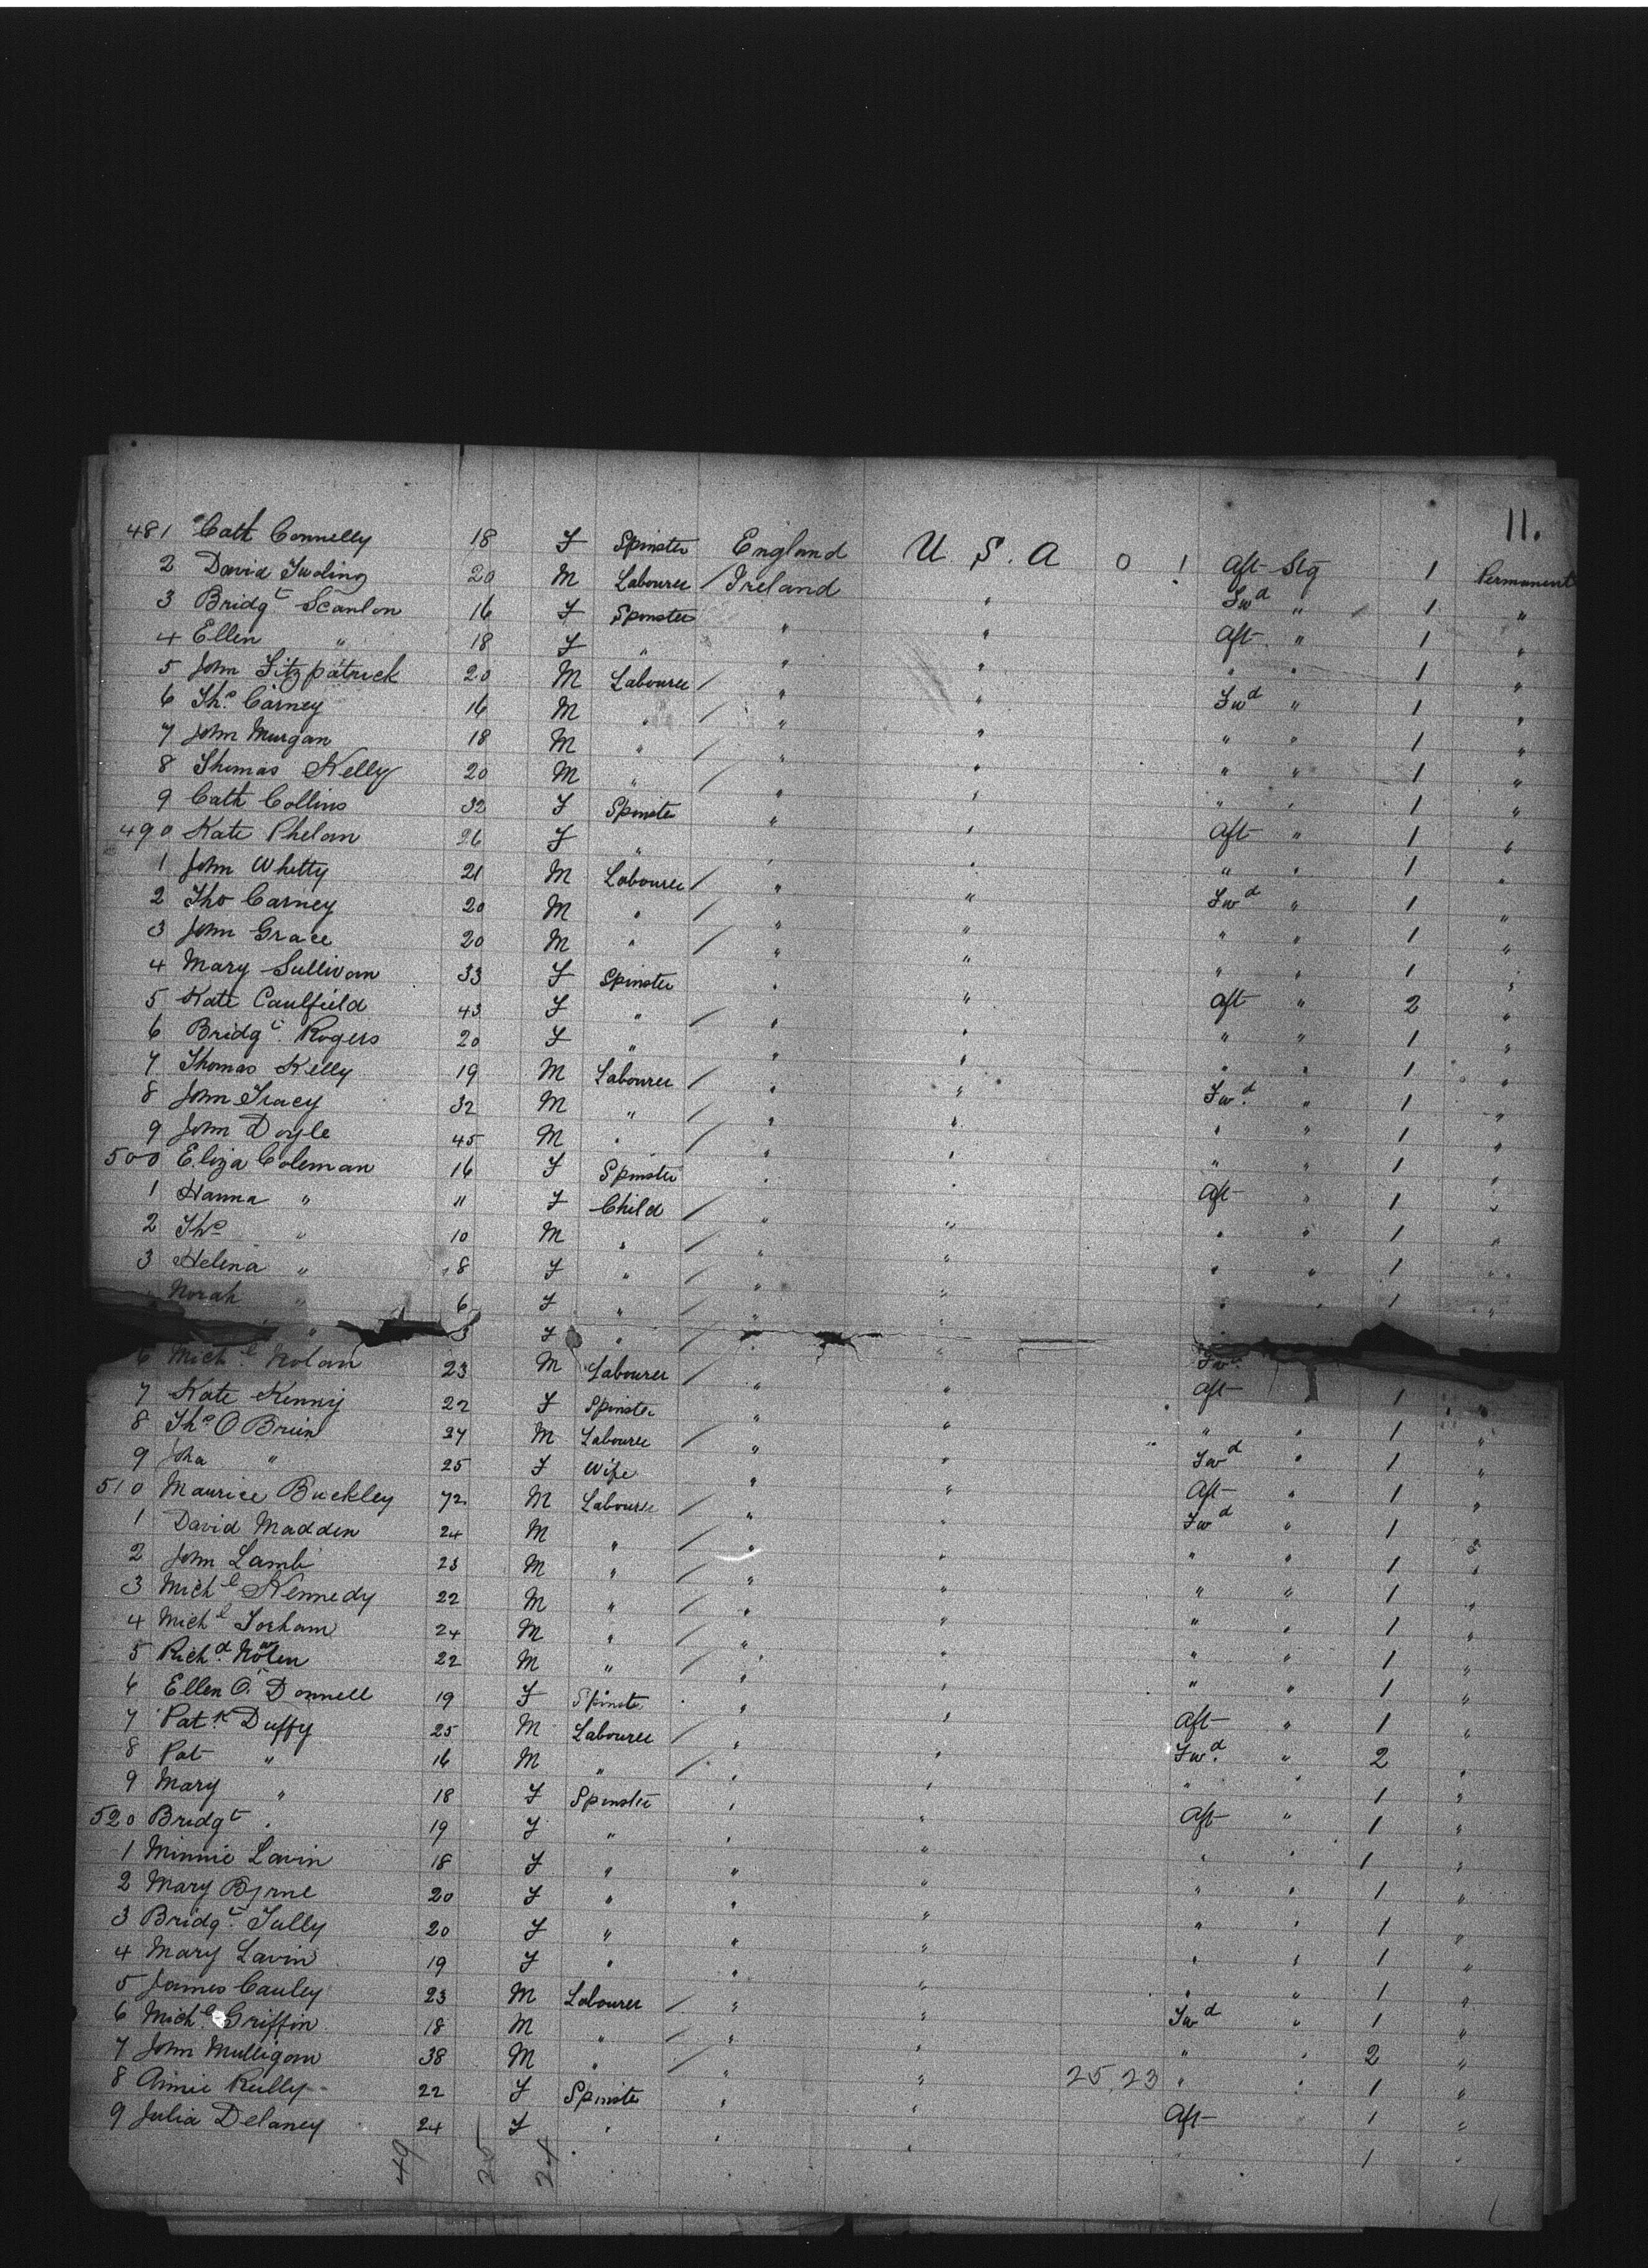 11.
481 Cath Connelly 18 F Spinster England U.S.A 0 ! Aft Stg 1 Permanent
2 David 20 M Labourer / Ireland " Fwd " 1 "
3 Bridgt Scanlon 16 F Spinster " " Aft " 1 "
4 Ellen " 18 F " " " " " 1 "
5 John Fitzpatrick 20 M Labourer / " " Fwd " 1 "
6 Tho. Carney 16 M " / " " " " 1 "
7 John Murgan 18 M " / " " " " 1 "
8 Thomas Kelly 20 M " / " " " " 1 "
9 Cath Collins 32 F Spinster " " Aft " 1 "
490 Kate Phelan 26 F " " " " " 1 "
1 John Whetty 21 M Labourer / " " Fwd " 1 "
2 Tho Carney 20 M " / " " " " 1 "
3 John Grace 20 M " / " " " " 1 "
4 Mary Sullivan 33 F Spinster " " Aft " 2 "
5 Kate Caulfield 43 F " / " " " " 1 "
6 Bridgt. Rogers 20 F " " " " " 1 "
7 Thomas Kelly 19 M Labourer / " " Fwd. " 1 "
8 John Tracy 32 M " / " " " " 1 "
9 John Doyle 45 M " / " " " " 1 "
500 Eliza Coleman 16 F Spinster " " Aft " 1 "
1 Hanna " 11 F Child / " " " " 1 "
2 Tho " 10 M " / " " " " 1 "
3 Helena " 8 F " / " " " " 1 "
Norah " 6 F " / " "
" 3 F " / " "
6 Michl. Nolan 23 M Labourer / " " Fwd
7 Kate Kenny 22 F Spinster " " Aft 1 "
8 Tho O Brien 27 M Labourer / " " " " 1 "
9 " 25 F Wife " " Fwd " 1 "
510 Maurice Buckley 72 M Labourer / " " Aft " 1 "
1 David Madden 24 M " / " " Fwd " 1 "
2 John Lamb 23 M " / " " " " 1 "
3 Michl Kennedy 22 M " / " " " " 1 "
4 Michl 24 M " / " " " " 1 "
5 Richd. Nolan 22 M " / " " " " 1 "
6 Ellen O'Donnell 19 F Spinste " " " " 1 "
7 Patk Duffy 25 M Labourer / " " Aft " 1 "
8 Pat " 16 M " / " " Fwd. " 2 "
9 Mary " 18 F Spinster " " " " 1 "
520 Bridgt " 19 F " " " Aft " 1 "
1 Minnie Lavin 18 F " " " " " 1 "
2 Mary Byrne 20 F " " " " " 1 "
3 Bridgt. Tully 20 F " " " " " 1 "
4 Mary Lavin 19 F " " " " " 1 "
5 James Cauley 23 M Labourer / " " " " 1 "
6 Michl. Griffin 18 M " / " " Fwd " 1 "
7 John Mulligan 38 M " / " " " " 2 "
8 Annie Reilly 22 F Spinster " " 25.23 " " 1 "
9 Julia Delaney 24 F " " " Aft " 1 "
1 "
49 25 24